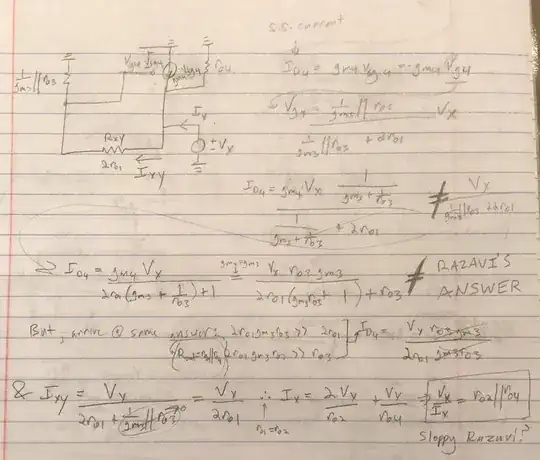 s.s. current
↓
I_D4 = gm4 Vg4 = -gm4 Vg4
1/gm3 || ro3
Vg4
ro4
I_x
±Vx
Rxy
2ro1
I_xy
Vg4 = (1/gm3 || ro3) / (1/gm3 || ro3 + 2ro1) Vx
I_D4 = gm4 Vx (1/(gm3 + 1/ro3)) / (1/(gm3 + 1/ro3) + 2ro1) ≠ Vx / (1/gm3 || ro3 + 2ro1)
I_D4 = gm4 Vx / (2ro1(gm3 + 1/ro3) + 1) = (gm4=gm3) Vx ro3 gm3 / (2ro1(gm3ro3 + 1) + ro3) ≠ RAZAVI'S ANSWER
But, arrive @ same answer: 2ro1gm3ro3 >> 2ro1, 2ro1gm3ro3 >> ro3 I_D4 = Vx ro3 gm3 / 2ro1 gm3ro3
& I_xy = Vx / (2ro1 + 1/gm3 || ro3 →0) = Vx / 2ro1 ∴ I_x = 2Vx / ro2 + Vx / ro4 ⇒ Vx / I_x = ro2 || ro4
↑
ro1=ro2
Sloppy Razavi?